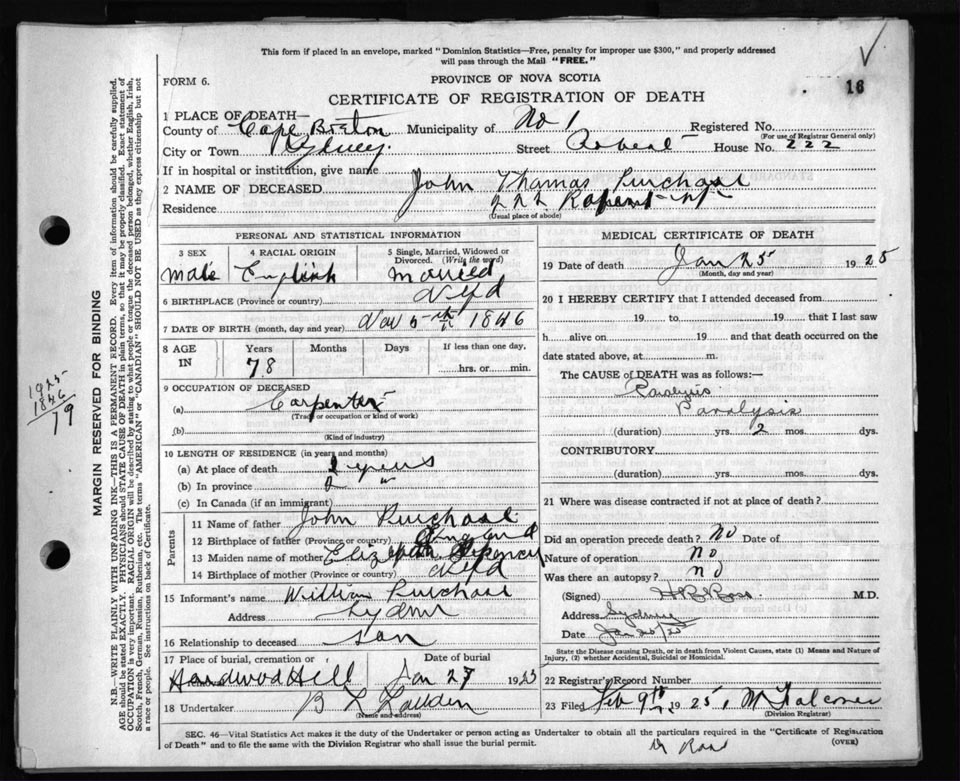 This form if placed in an envelope, marked "Dominion Statistics—Free, penalty for improper use $300," and properly addressed
will pass through the Mail "FREE."
FORM 6.
PROVINCE OF NOVA SCOTIA
16
CERTIFICATE OF REGISTRATION OF DEATH
1 PLACE OF DEATH—
County of Cape Breton Municipality of No 1 Registered No.
(For use of Registrar General only)
City or Town Sydney. Street House No. 222
If in hospital or institution, give name
2 NAME OF DECEASED John Thomas Purchase
Residence 222
(Usual place of abode)
PERSONAL AND STATISTICAL INFORMATION
3 SEX 4 RACIAL ORIGIN 5 Single, Married, Widowed or Divorced. (Write the word)
Male English Married
6 BIRTHPLACE (Province or country) Nfld
7 DATE OF BIRTH (month, day and year) Nov 5th 1846
8 AGE IN Years Months Days If less than one day,
78 hrs. or min.
9 OCCUPATION OF DECEASED
(a) Carpenter
(Trade or occupation or kind of work)
(b)
(Kind of industry)
10 LENGTH OF RESIDENCE (in years and months)
(a) At place of death 2 years
(b) In province 2 "
(c) In Canada (if an immigrant)
Parents
11 Name of father John Purchase
12 Birthplace of father (Province or country) England
13 Maiden name of mother Elizabeth
14 Birthplace of mother (Province or country) Nfld
15 Informant's name William Purchase
Address Sydney
16 Relationship to deceased son
17 Place of burial, cremation or Date of burial
Hardwood Hill Jan 27 1925
18 Undertaker B L
(Name and address)
MEDICAL CERTIFICATE OF DEATH
19 Date of death Jan 25 1925
(Month, day and year)
20 I HEREBY CERTIFY that I attended deceased from
19 to 19 that I last saw
h alive on 19 and that death occurred on the
date stated above, at m.
The CAUSE of DEATH was as follows:
Paralysis
Paralysis
(duration) yrs. 2 mos. dys.
CONTRIBUTORY
(duration) yrs. mos. dys.
21 Where was disease contracted if not at place of death?
Did an operation precede death? No Date of
Nature of operation No
Was there an autopsy? No
(Signed) Ross M.D.
Address Sydney
Date
State the Disease causing Death, or in death from Violent Causes, state (1) Means and Nature of
Injury, (2) whether Accidental, Suicidal or Homicidal.
22 Registrar's Record Number
23 Filed Feb 9th 1925,
(Division Registrar)
SEC. 46—Vital Statistics Act makes it the duty of the Undertaker or person acting as Undertaker to obtain all the particulars required in the "Certificate of Registration
of Death" and to file the same with the Division Registrar who shall issue the burial permit.
(OVER)
Dr Ross
MARGIN RESERVED FOR BINDING
N.B.—WRITE PLAINLY WITH UNFADING INK—THIS IS A PERMANENT RECORD. Every item of information should be carefully supplied.
AGE should be stated EXACTLY. PHYSICIANS should STATE CAUSE OF DEATH in plain terms, so that it may be properly classified. Exact statement of
OCCUPATION is very important. RACIAL ORIGIN will be described by stating to what people or tongue the deceased person belonged, whether English, Irish,
Scotch, French, German, Russian, Ruthenian, etc. The terms "AMERICAN" or "CANADIAN" SHOULD NOT BE USED as they express citizenship but not
a race or people. See instructions on back of Certificate.
1925
1846
79